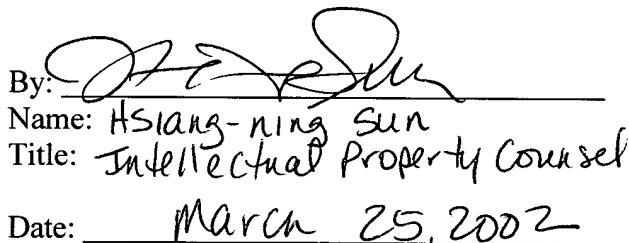 By:
Name: Hsiang-ning Sun
Title: Intellectual Property Counsel
Date: March 25, 2002